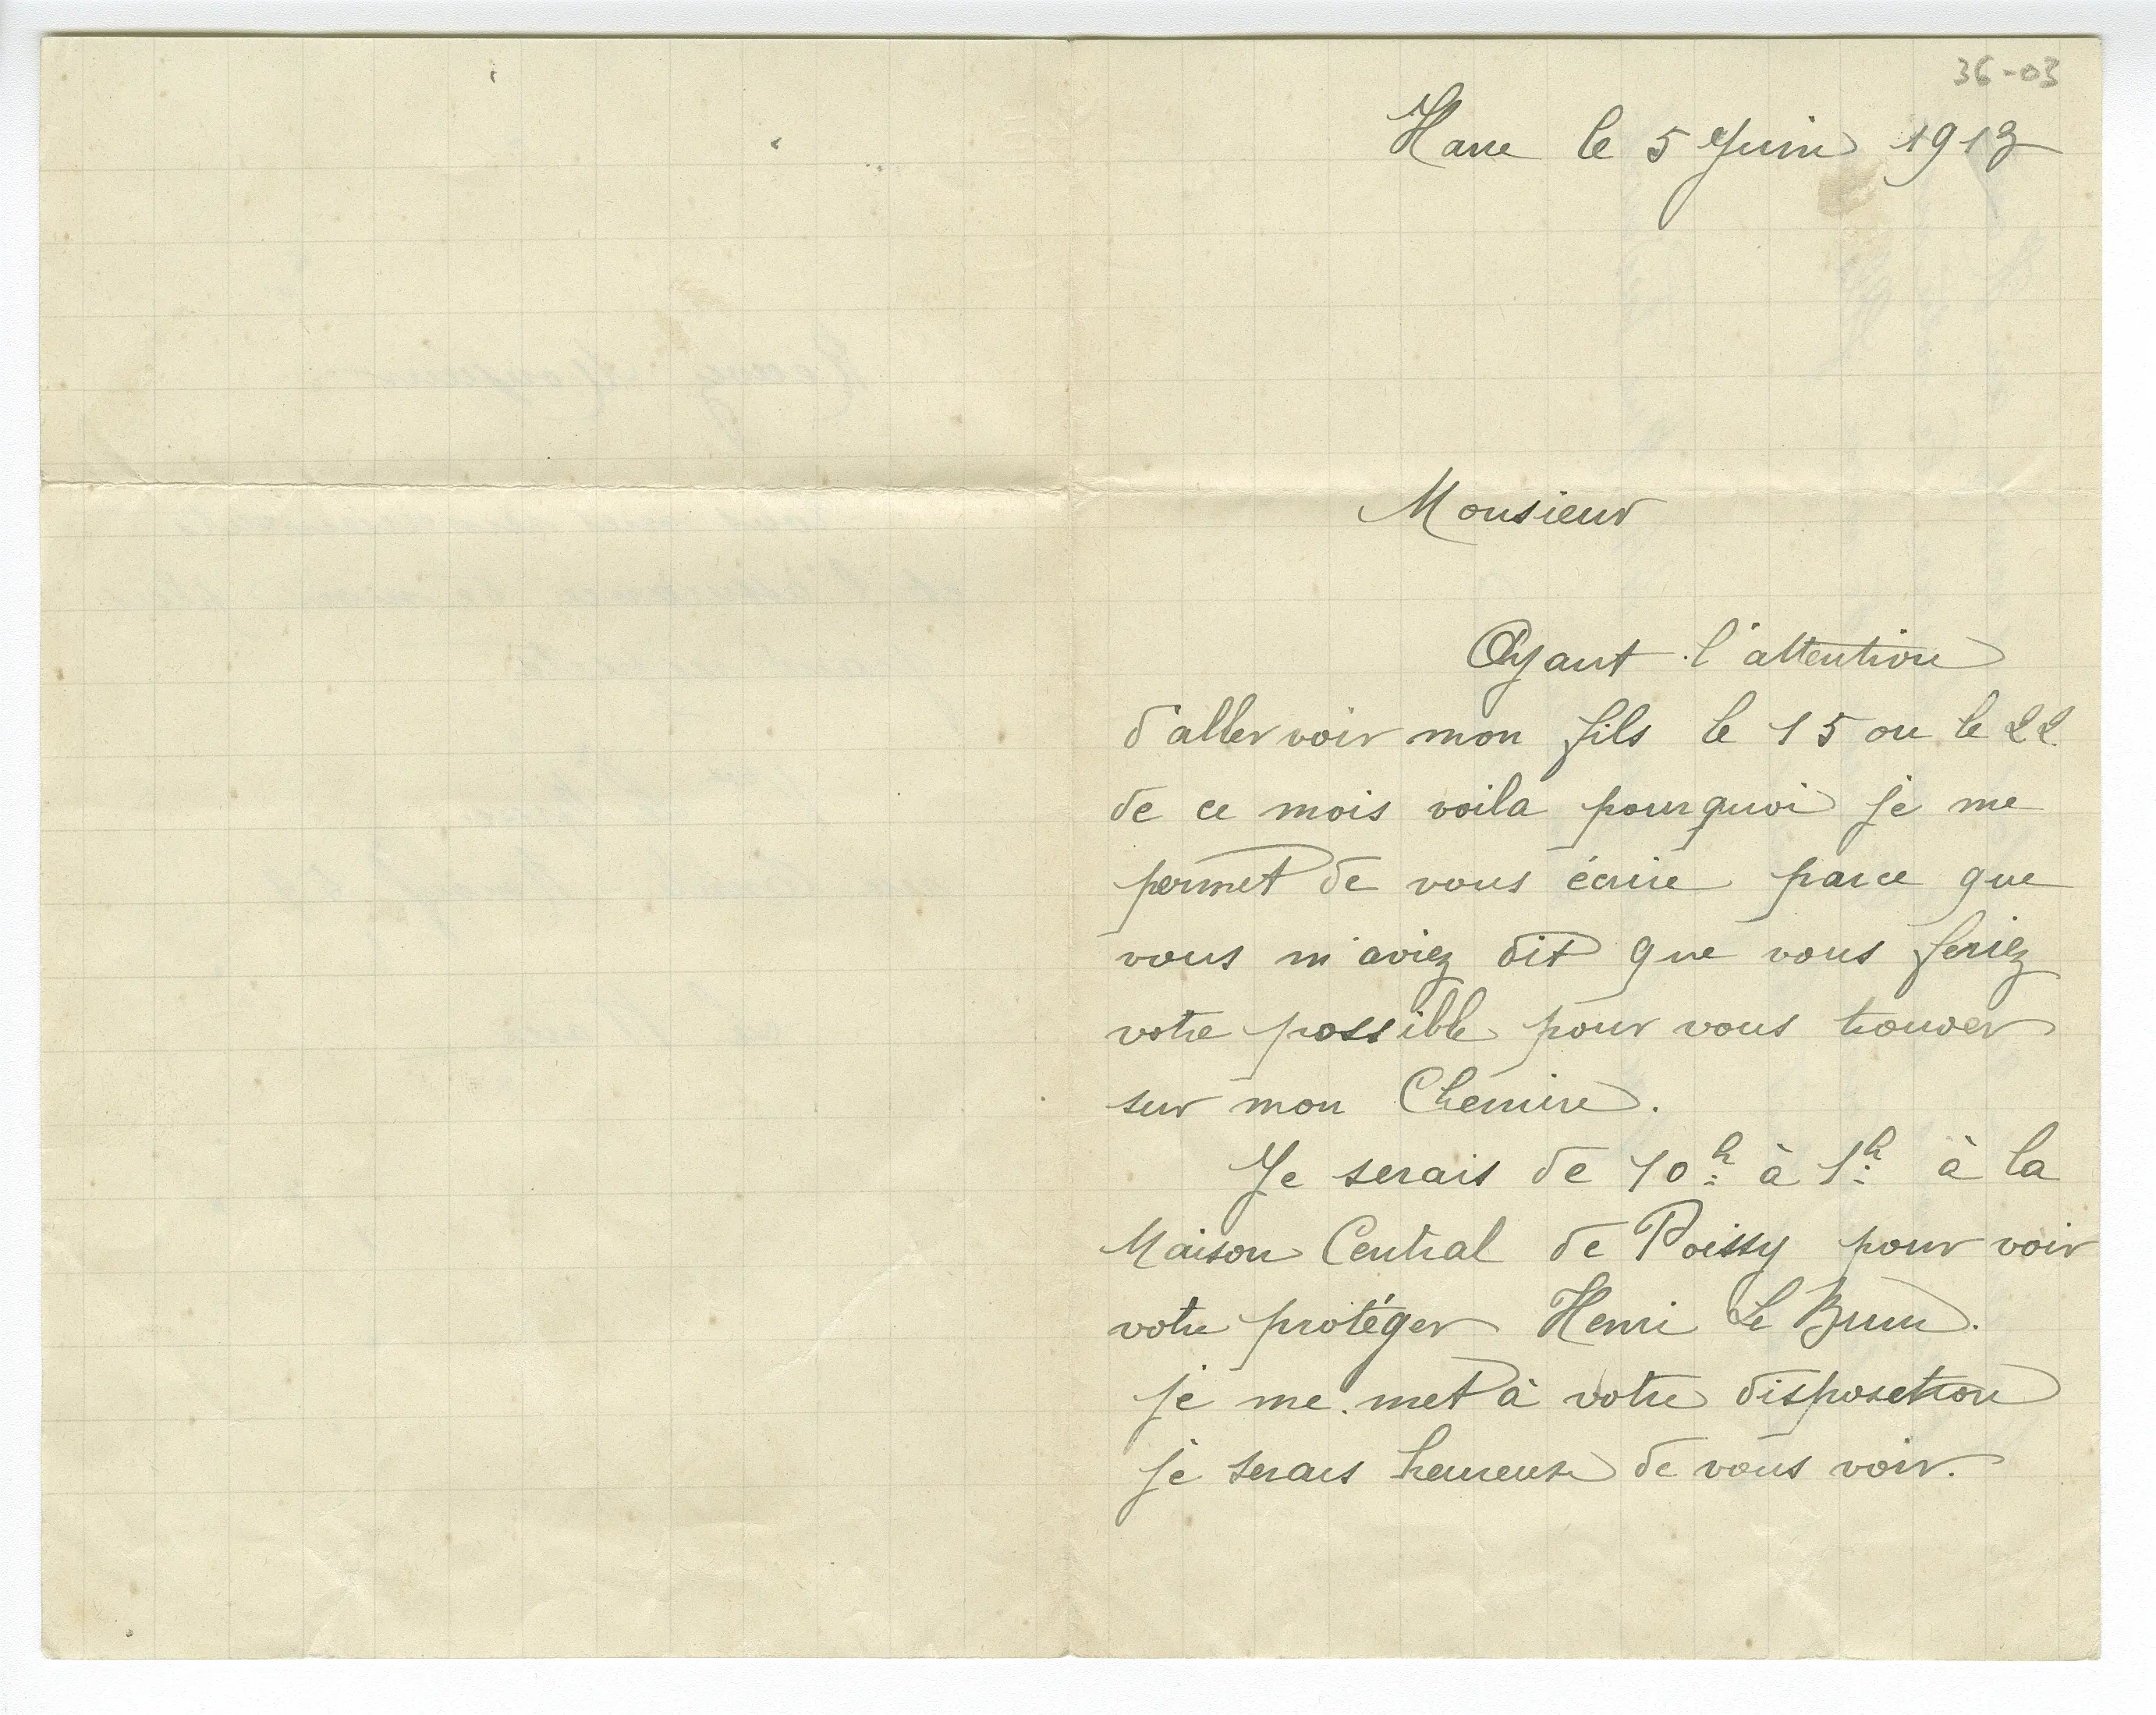 36-03
Havre le 5 Juin 1913
Monsieur
Ayant l'attention
d'aller voir mon fils le 15 ou le 22
de ce mois voila pourquoi je me
permet de vous écrire parce que
vous m'aviez dit que vous feriez
votre possible pour vous trouver
sur mon Chemin.
Je serais de 10h à 1h à la
Maison Central de Poissy pour voir
votre protéger Henri Le Brun.
je me met à votre disposetion
je serais heureuse de vous voir.